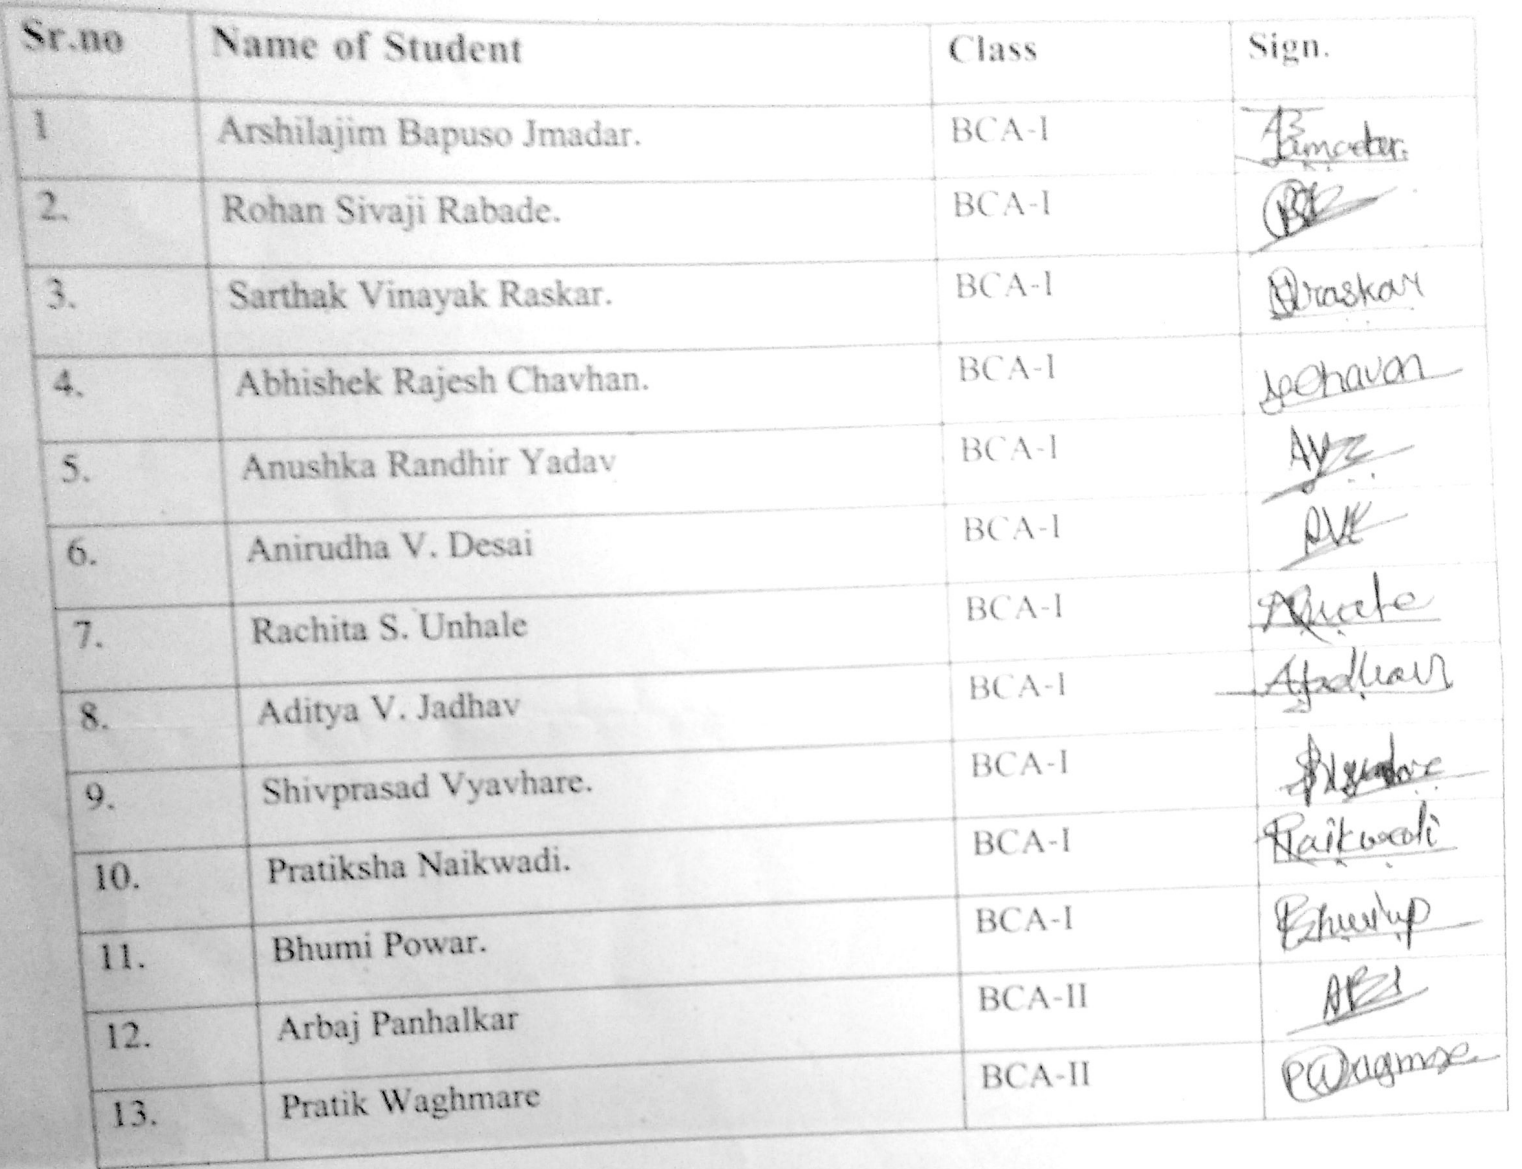 Sr.no Name of Student Class Sign.
1 Arshilajim Bapuso Jmadar. BCA-I
2. Rohan Sivaji Rabade. BCA-I
3. Sarthak Vinayak Raskar. BCA-I raskar
4. Abhishek Rajesh Chavhan. BCA-I
5. Anushka Randhir Yadav BCA-I
6. Anirudha V. Desai BCA-I
7. Rachita S. Unhale BCA-I
8. Aditya V. Jadhav BCA-I
9. Shivprasad Vyavhare. BCA-I
10. Pratiksha Naikwadi. BCA-I
11. Bhumi Powar. BCA-I
12. Arbaj Panhalkar BCA-II
13. Pratik Waghmare BCA-II